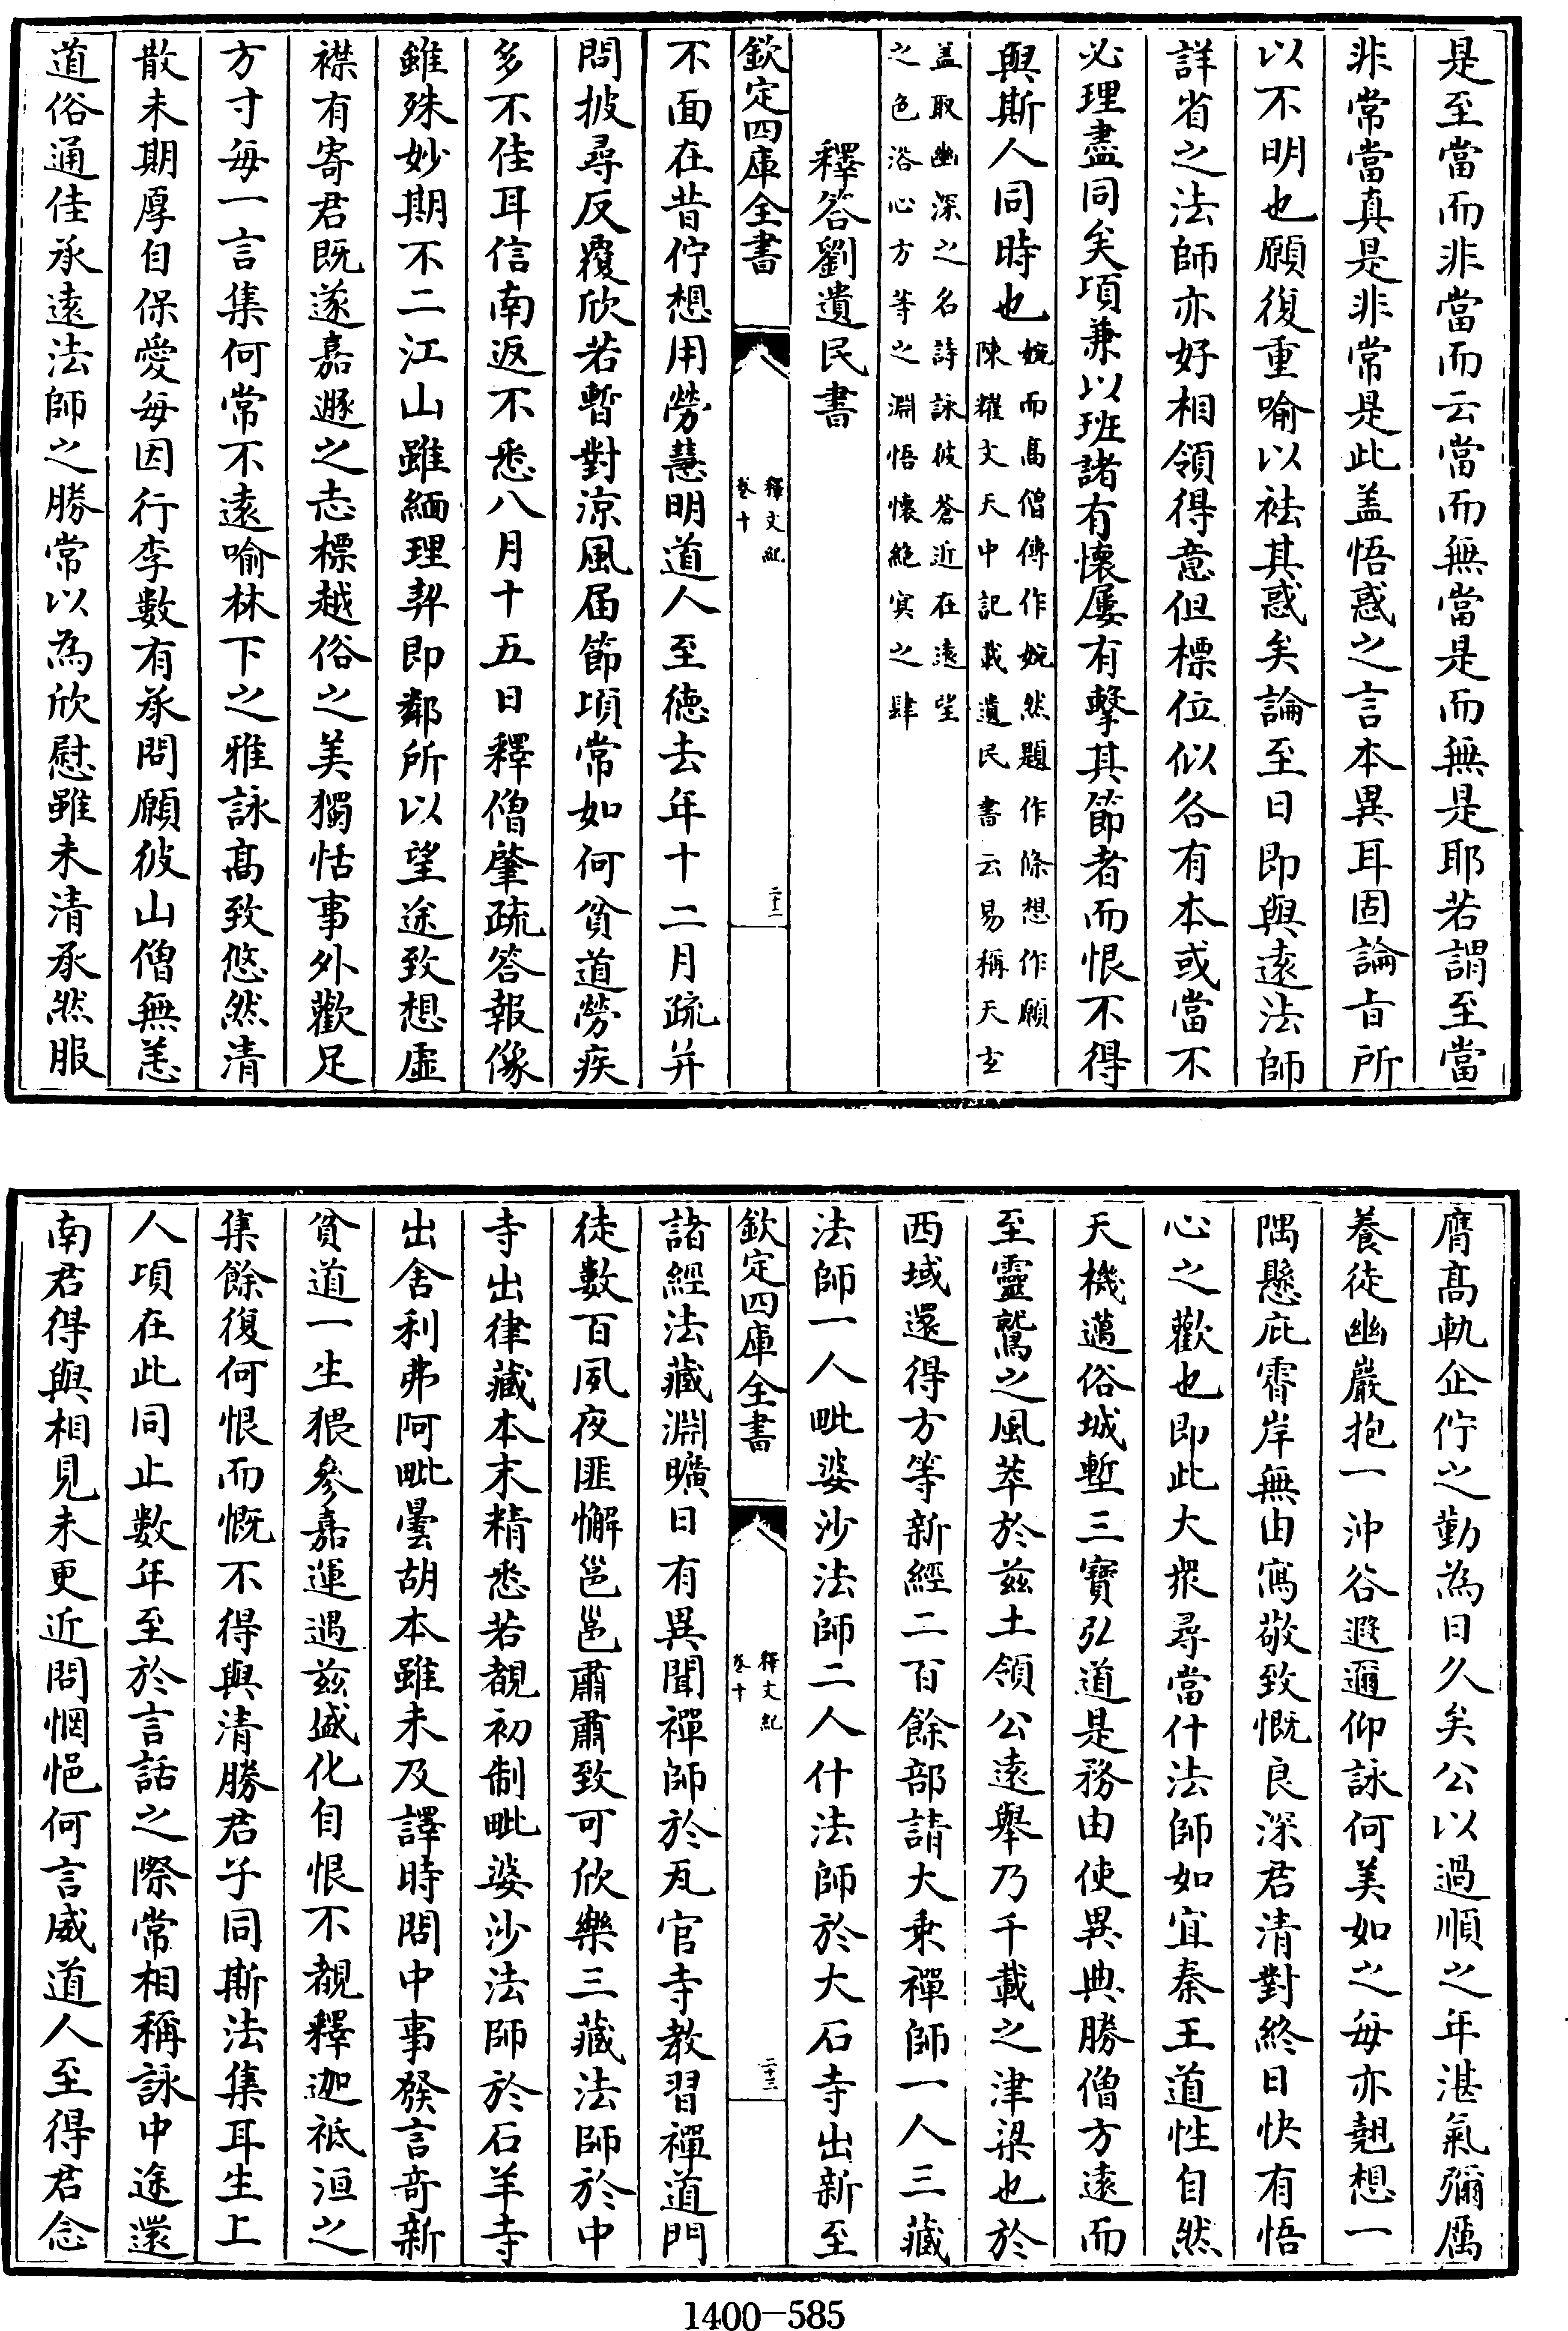 是至當而非當而云當而無當是而無是耶若謂至當
非常當真是非常是此盖悟惑之言本異耳固論旨所
以不明也願復重喻以祛其惑矣論至日即與遠法師
詳省之法師亦好相領得意但標位似各有本或當不
必理盡同矣頃兼以班諸有懷屢有擊其節者而恨不得
與斯人同時也婉而高僧傳作婉然題作條想作願
陳耀文天中記載遺民書云易稱天玄
盖取幽深之名詩詠彼蒼近在遠望
之色浴心方等之淵悟懷絶冥之肆
釋答劉遺民書
欽定四庫全書
釋文紀
卷十
二十二
不面在昔佇想用勞慧明道人至德去年十二月疏并
問披尋反覆欣若暫對涼風届節頃常如何貧道勞疾
多不佳耳信南返不悉八月十五日釋僧肇疏答報像
雖殊妙期不二江山雖緬理契即鄰所以望途致想虛
襟有寄君既遂嘉遯之志標越俗之美獨恬事外歡足
方寸毎一言集何常不遠喻林下之雅詠髙致悠然清
散未期厚自保愛每因行李數有承問願彼山僧無恙
道俗通佳承遠法師之勝常以為欣慰雖未清承然服
膺髙軌企佇之勤為日久矣公以過順之年湛氣彌厲
養徒幽巖抱一沖谷遐邇仰詠何美如之每亦翹想一
隅懸庇霄岸無由寫敬致慨良深君清對終日快有悟
心之歡也即此大衆尋當什法師如宜秦王道性自然
天機邁俗城塹三寶弘道是務由使異典勝僧方遠而
至靈鷲之風萃於兹土領公遠舉乃千載之津梁也於
西域還得方等新經二百餘部請大乘禪師一人三藏
法師一人毗婆沙法師二人什法師於大石寺出新至
欽定四庫全書
釋文紀
卷十
二十三
諸經法藏淵曠日有異聞禪師於瓦官寺教習禪道門
徒數百夙夜匪懈邕邕肅肅致可欣樂三藏法師於中
寺出律藏本末精悉若覩初制毗婆沙法師於石羊寺
出舍利弗阿毗曇胡本雖未及譯時問中事發言奇新
貧道一生猥參嘉運遇兹盛化自恨不覩釋迦祗洹之
集餘復何恨而慨不得與清勝君子同斯法集耳生上
人頃在此同止數年至於言話之際常相稱詠中途還
南君得與相見未更近問惘悒何言威道人至得君念
1400-585